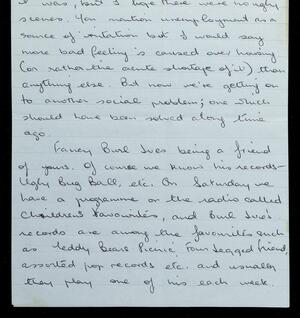 it was, but I hope there were no ugly
scenes. You mention unemployment as a
source of irritation but I would say
more bad feeling is caused over housing
(or rather the acute shortage of it) than
anything else. But now we're getting on
to another social problem; one which
should have been solved along time
ago.
Fancy Burl Ives being a friend
of yours. Of course we know his records -
Ugly Bug Ball, etc. On Saturday we
have a programme on the radio called
Children's Favourites, and Burl Ive's
records are among the favourites such
as Teddy Bears Picnic, Four Legged Friend,
assorted pop records etc. and usually
they play one of his each week.